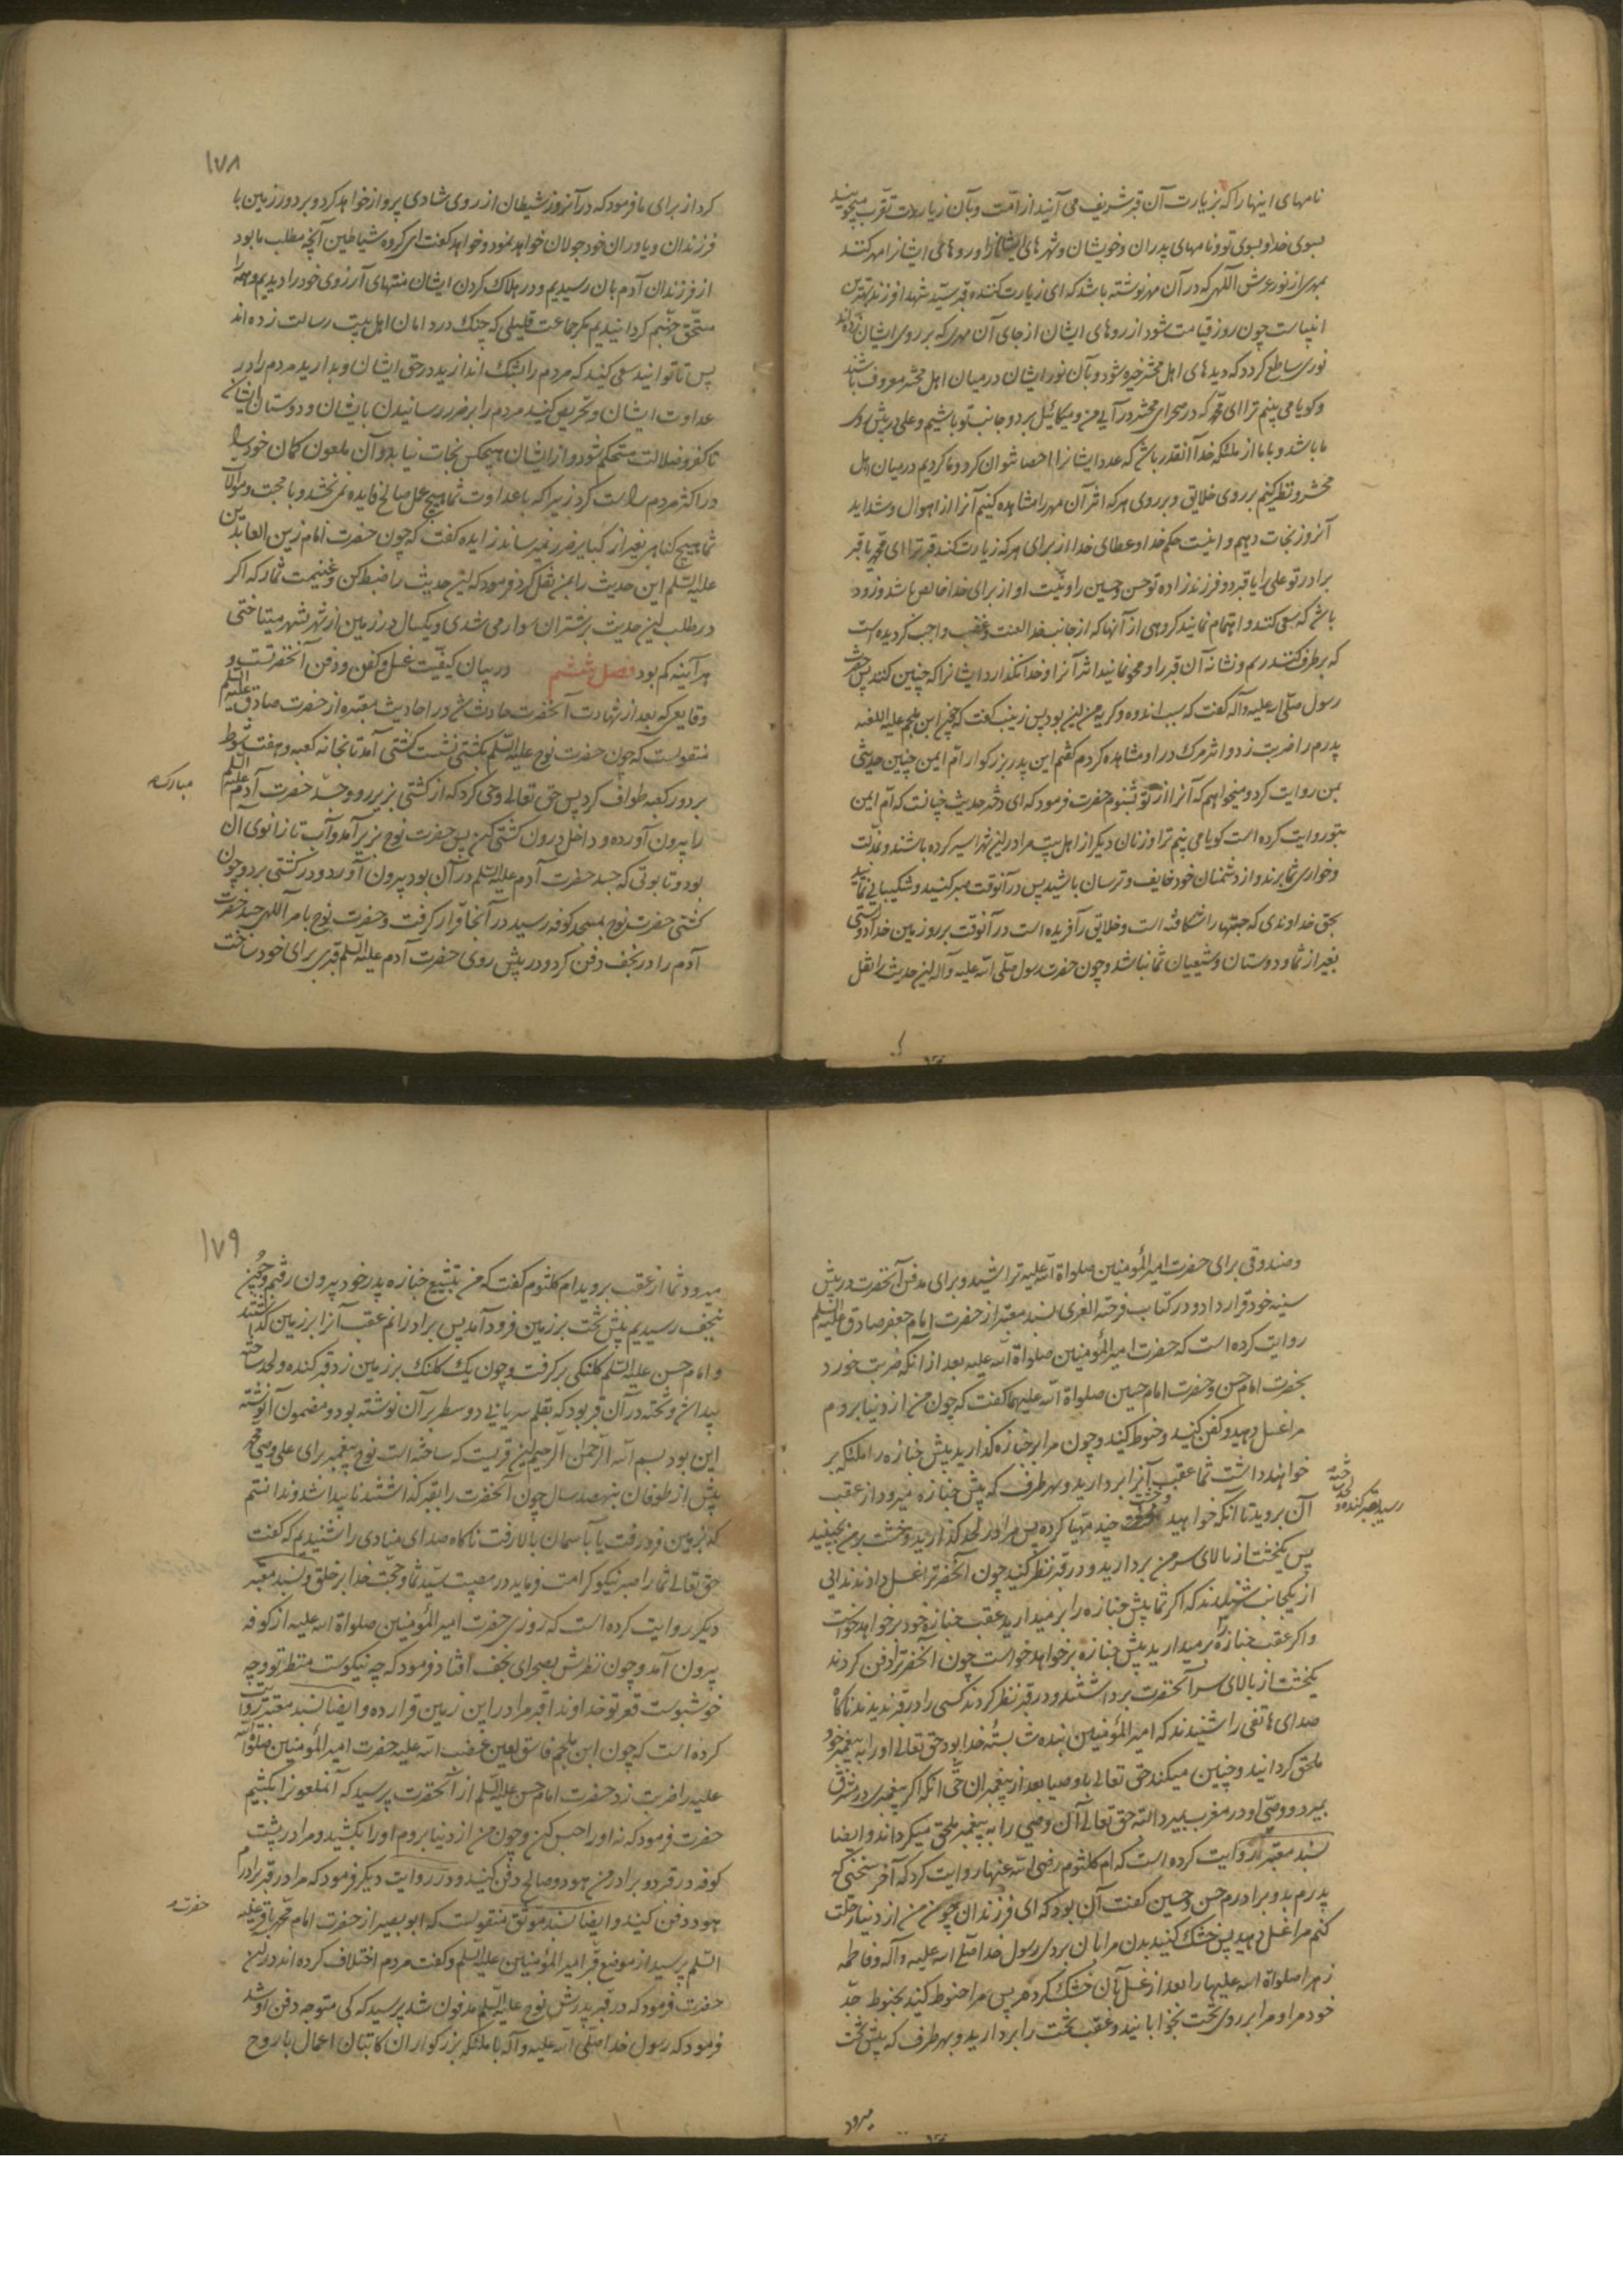 نامهای اینها را که بزیارت آن قبر شریف می آیند از امت و بآن زیارت تقرب میجویند
بسوی خدا و بسوی تو و نامهای پدران و خویشان و شهرهای ایشانرا و روهای ایشانرا مهر کنند
بمهری از نور عرش اللهی که در آن مهر نوشته باشد که ای زیارت کننده قبر سید شهدا فرزند بهترین
انبیاست چون روز قیامت شود از روهای ایشان از جای آن مهری که بر روی ایشان زده اند
نوری ساطع کردد که دیدهای اهل محشر خیره شود و بآن نور ایشان در میان اهل محشر معروف باشند
و کویا می بینم ترا ای محمد که در صحرای محشر در آیی من و میکائیل بر دو جانب تو باشیم و علی در پیش روی
ما باشد و با ما از ملئکه خدا آنقدر باشد که عدد ایشانرا احصا نتوان کرد و ما کردیم در میان اهل
محشر و نظر کنیم بر روی خلایق و بر روی هر که اثر آن مهر را مشاهده کنیم آنرا از اهوال و شداید
آنروز نجات دهیم و اینست حکم خدا و عطای خدا از برای هر که زیارت کند قبر ترا ای محمد یا قبر
برادر تو علی را یا قبر دو فرزند زاده تو حسن و حسین را و نیت او از برای خدا خالص باشد و زود
باشد که سعی کنند و اهتمام نمایند کروهی از آنها که از جانب خدا لعنت و غضب واجب کردیده است
که بر طرف کنند رسم و نشانه آن قبر را و محو نمایند اثر آنرا و خدا نکذارد ایشانرا که چنین کنند پس حضرت
رسول صلی الله علیه و آله کفت که سبب اندوه و کریه من این بود پس زینب کفت که چون ابن ملجم علیه اللعنه
پدرم را ضربت زد و اثر مرک در او مشاهده کردم کفتم این پدر بزرکوار ام ایمن چنین حدیثی
بمن روایت کرد و میخواهم که آنرا از تو بشنوم حضرت فرمود که ای دختر حدیث چنانست که ام ایمن
بتو روایت کرده است کویا می بینم ترا و زنان دیکر از اهل بیت مرا در این شهر اسیر کرده باشند و بمذلت
و خواری شما برند و از دشمنان خود خایف و ترسان باشید پس در آنوقت صبر کنید و شکیبایی نمائید
بحق خداوندی که حبتها را شکافته است و خلایق را آفریده است در آنوقت بر روی زمین خدا دوستی
بغیر از شما و دوستان و شیعیان شما نباشد و چون حضرت رسول صلی الله علیه و آله این حدیث را نقل
۱۷۸
کرد از برای ما فرمود که در آنروز شیطان از روی شادی پرواز خواهد کرد و بر دور زمین با
فرزندان و یاوران خود جولان خواهد نمود و خواهد کفت ای کروه شیاطین آنچه مطلب ما بود
از فرزندان آدم بآن رسیدیم و در هلاک کردن ایشان منتهای آرزوی خود را دیدیم و همه را
مستحق جهنم کردانیدیم مکر جماعت قلیلی که چنک در دامان اهل بیت رسالت زده اند
پس تا توانید سعی کنید که مردم را بشک اندازید در حق ایشان و بدارید مردم را در
عداوت ایشان و تحریص کنید مردم را بر ضرر رسانیدن بایشان و دوستان ایشان
تا کفر و ضلالت مستحکم شود و از ایشان هیچکس نجات نیابد و آن ملعون کمان خود را
در اکثر مردم راست کرد زیرا که با عداوت شما هیچ عمل صالح فایده نمی بخشد و با محبت و موالات
شما هیچ کناهی بغیر از کبایر ضرر نمیرساند زایده کفت که چون حضرت امام زین العابدین
علیه السلم این حدیث را بمن نقل کرد فرمود که این حدیث را ضبط کن و غنیمت شمار که اکر
در طلب این حدیث بر شتران سوار می شدی و یکسال در زمین از شهر بشهر میتاختی
هر آینه کم بود فصل ششم در بیان کیفیت غسل و کفن و دفن آنحضرتست و
وقایعی که بعد از شهادت آنحضرت حادث شد در احادیث معتبره از حضرت صادق علیه السلم
منقولست که چون حضرت نوح علیه السلم بکشتی نشست کشتی آمد تا بخانه کعبه و هفت شوط
بر دور کعبه طواف کرد پس حق تعالی وحی کرد که از کشتی بزیر رو و جسد حضرت آدم علیه السلم
مبارک
را بیرون آورده و داخل درون کشتی کن پس حضرت نوح بزیر آمد و آب تا زانوی آن
بود و تابوتی که جسد حضرت آدم علیه السلم در آن بود بیرون آورد و در کشتی برد و چون
کشتی حضرت نوح بمسجد کوفه رسید در آنجا قرار کرفت و حضرت نوح بامر اللهی جسد حضرت
آدم را در نجف دفن کرد و در پیش روی حضرت آدم علیه السلم قبری برای خود ساخت
و صندوقی برای حضرت امیرالمؤمنین صلواة الله علیه تراشید و برای مدفن آنحضرت در پیش
سینه خود قرار داد و در کتاب فرحة الغری بسند معتبر از حضرت امام جعفر صادق علیه السلم
روایت کرده است که حضرت امیرالمؤمنین صلواة الله علیه بعد از آنکه ضربت خورد
بحضرت امام حسن و حضرت امام حسین صلواة الله علیهما کفت که چون من از دنیا بروم
مرا غسل دهید و کفن کنید و حنوط کنید و چون مرا بر جنازه کذارید پیش جنازه را ملئکه بر
خواهند داشت شما عقب آنرا بردارید و بهر طرف که پیش جنازه میرود از عقب
آن بروید تا آنکه خواهید و خشت چند مهیا کرده پس مرا در لحد کذارید و خشت بر من بچینید
رسید بقبر کنده و لحد
پس یکخشت از بالای سر من بردارید و در قبر نظر کنید چون آنحضرترا غسل دادند ندائی
از یکجانب شنیدند که اکر شما پیش جنازه را بر میدارید عقب جنازه خود بر خواهد خواست
و اکر عقب جنازه را بر میدارید پیش جنازه بر خواهد خواست چون آنحضرترا دفن کردند
یکخشت از بالای سر آنحضرت برداشتند و در قبر نظر کردند کسی را در قبر ندیدند ناکاه
صدای هاتفی را شنیدند که امیرالمؤمنین بنده شایسته خدا بود حق تعالی او را به پیغمبر خود
ملحق کردانید و چنین میکند حق تعالی باوصیا بعد از پیغمبران حتی آنکه اکر پیغمبری در مشرق
بمیرد و وصی او در مغرب بمیرد البته حق تعالی آن وصی را به پیغمبر ملحق میکرداند و ایضا
بسند معتبر روایت کرده است که ام کلثوم رضی الله عنها روایت کرد که آخر سخنی که
پدرم بدو برادرم حسن و حسین کفت آن بود که ای فرزندان چون من از دنیا رحلت
کنم مرا غسل دهید پس خشک کنید بدن مرا بآن بردی رسول خدا صلی الله علیه و آله و فاطمه
زهرا صلواة الله علیها را بعد از غسل بآن خشک کردم پس مرا حنوط کنید بحنوط جد
خود مرا و مرا بر روی تخت بخوابانید و عقب تخت را بردارید و بهر طرف که پیش تخت
میرود
۱۷۹
میرود شما از عقب بروید ام کلثوم کفت که من بتشییع جنازه پدر خود بیرون رفتم و چون
بنجف رسیدیم پیش تخت بر زمین فرود آمد پس برادرانم عقب آنرا بر زمین کذاشتند
و امام حسن علیه السلم کلنکی بر کرفت و چون یک کلنک بر زمین زد قبر کنده و لحد ساخته
پیدا شد و تخته در آن قبر بود که بقلم سریانی دو سطر بر آن نوشته بود و مضمون آن نوشته
این بود بسم الله الرحمن الرحیم این قبریست که ساخته است نوح پیغمبر برای علی وصی محمد
پیش از طوفان بهفصد سال چون آنحضرت را بقبر کذاشتند ناپیدا شد و ندانستم
که بزمین فرو رفت یا بآسمان بالا رفت ناکاه صدای منادی را شنیدیم که کفت
حق تعالی شما را صبر نیکو کرامت فرماید در مصیبت سید شما و حجت خدا بر خلق و بسند معتبر
دیکر روایت کرده است که روزی حضرت امیرالمؤمنین صلواة الله علیه از کوفه
بیرون آمد و چون نظرش بصحرای نجف افتاد فرمود که چه نیکوست منظر تو و چه
خوشبوست قعر تو خداوندا قبر مرا در این زمین قرار ده و ایضا بسند معتبر روایت
کرده است که چون ابن ملجم فاسق لعین غضب الله علیه حضرت امیرالمؤمنین صلواة الله
علیه را ضربت زد حضرت امام حسن علیه السلم از آنحضرت پرسید که آنملعونرا بکشیم
حضرت فرمود که نه او را حبس کن و چون من از دنیا بروم او را بکشید و مرا در پشت
کوفه در قبر دو برادر من هود و صالح دفن کنید و در روایت دیکر فرمود که مرا در قبر برادرم
هود دفن کنید و ایضا بسند موثق منقولست که ابو بصیر از حضرت امام محمد باقر علیه
حضرت
السلم پرسید از موضع قبر امیرالمؤمنین علیه السلم و کفت مردم اختلاف کرده اند در این
حضرت فرمود که در قبر پدرش نوح علیه السلم مدفون شد پرسید که کی متوجه دفن او شد
فرمود که رسول خدا صلی الله علیه و آله با ملئکه بزرکواران کاتبان اعمال با روح